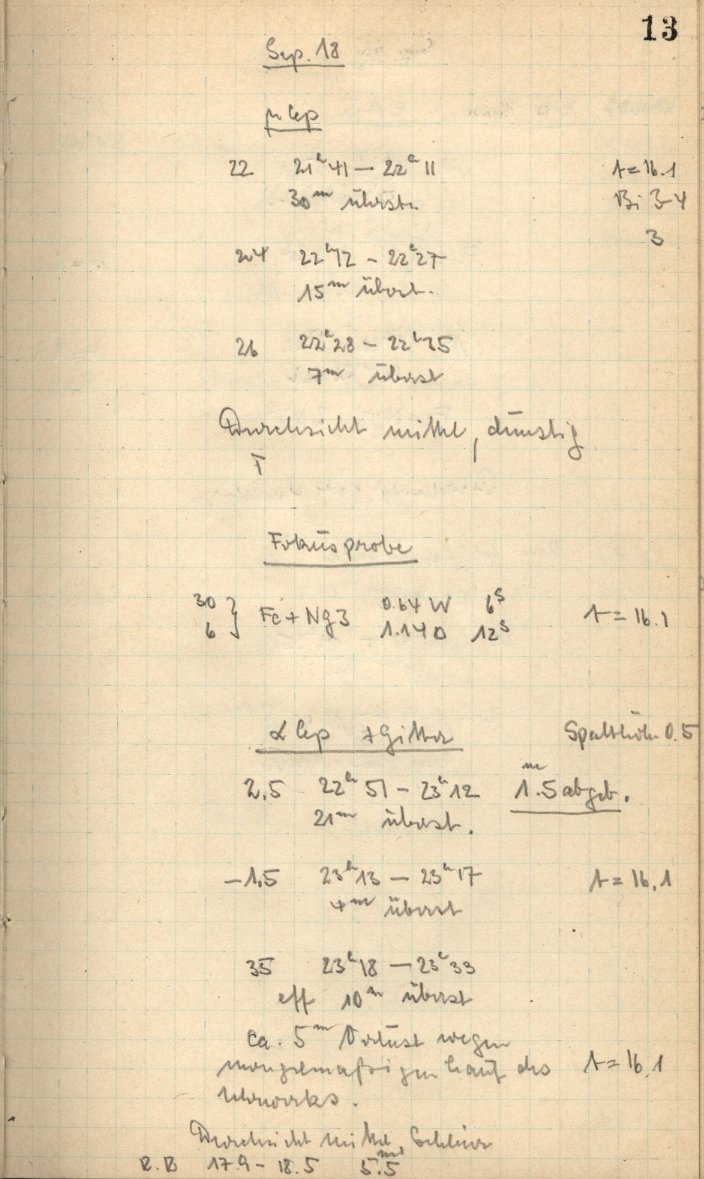 13
Sep. 18
μ Cep
22 21ʰ41 – 22ʰ11 t = 16.1
30ᵐ überst. Bi 3-4
3
24 22ʰ12 – 22ʰ27
15ᵐ überst.
26 22ʰ28 – 22ʰ35
7ᵐ überst
Durchsicht mittel, dunstig
Fokusprobe
30 } Fe + Ng3 0.64 W 6ˢ t = 16.1
6 1.14 D 12ˢ
α Cep + Gitter Spalthöhe 0.5
2,5 22ʰ51 – 23ʰ12 1.ᵐ5 abgeb.
21ᵐ überst.
–1,5 23ʰ13 – 23ʰ17 t = 16.1
4ᵐ überst
35 23ʰ18 – 23ʰ33
eff 10ᵐ überst
ca. 5ᵐ Verlust wegen
Lauf des t = 16.1
Uhrwerks.
Durchsicht mittel, Schleier
B.B 17.9 – 18.5 5.5